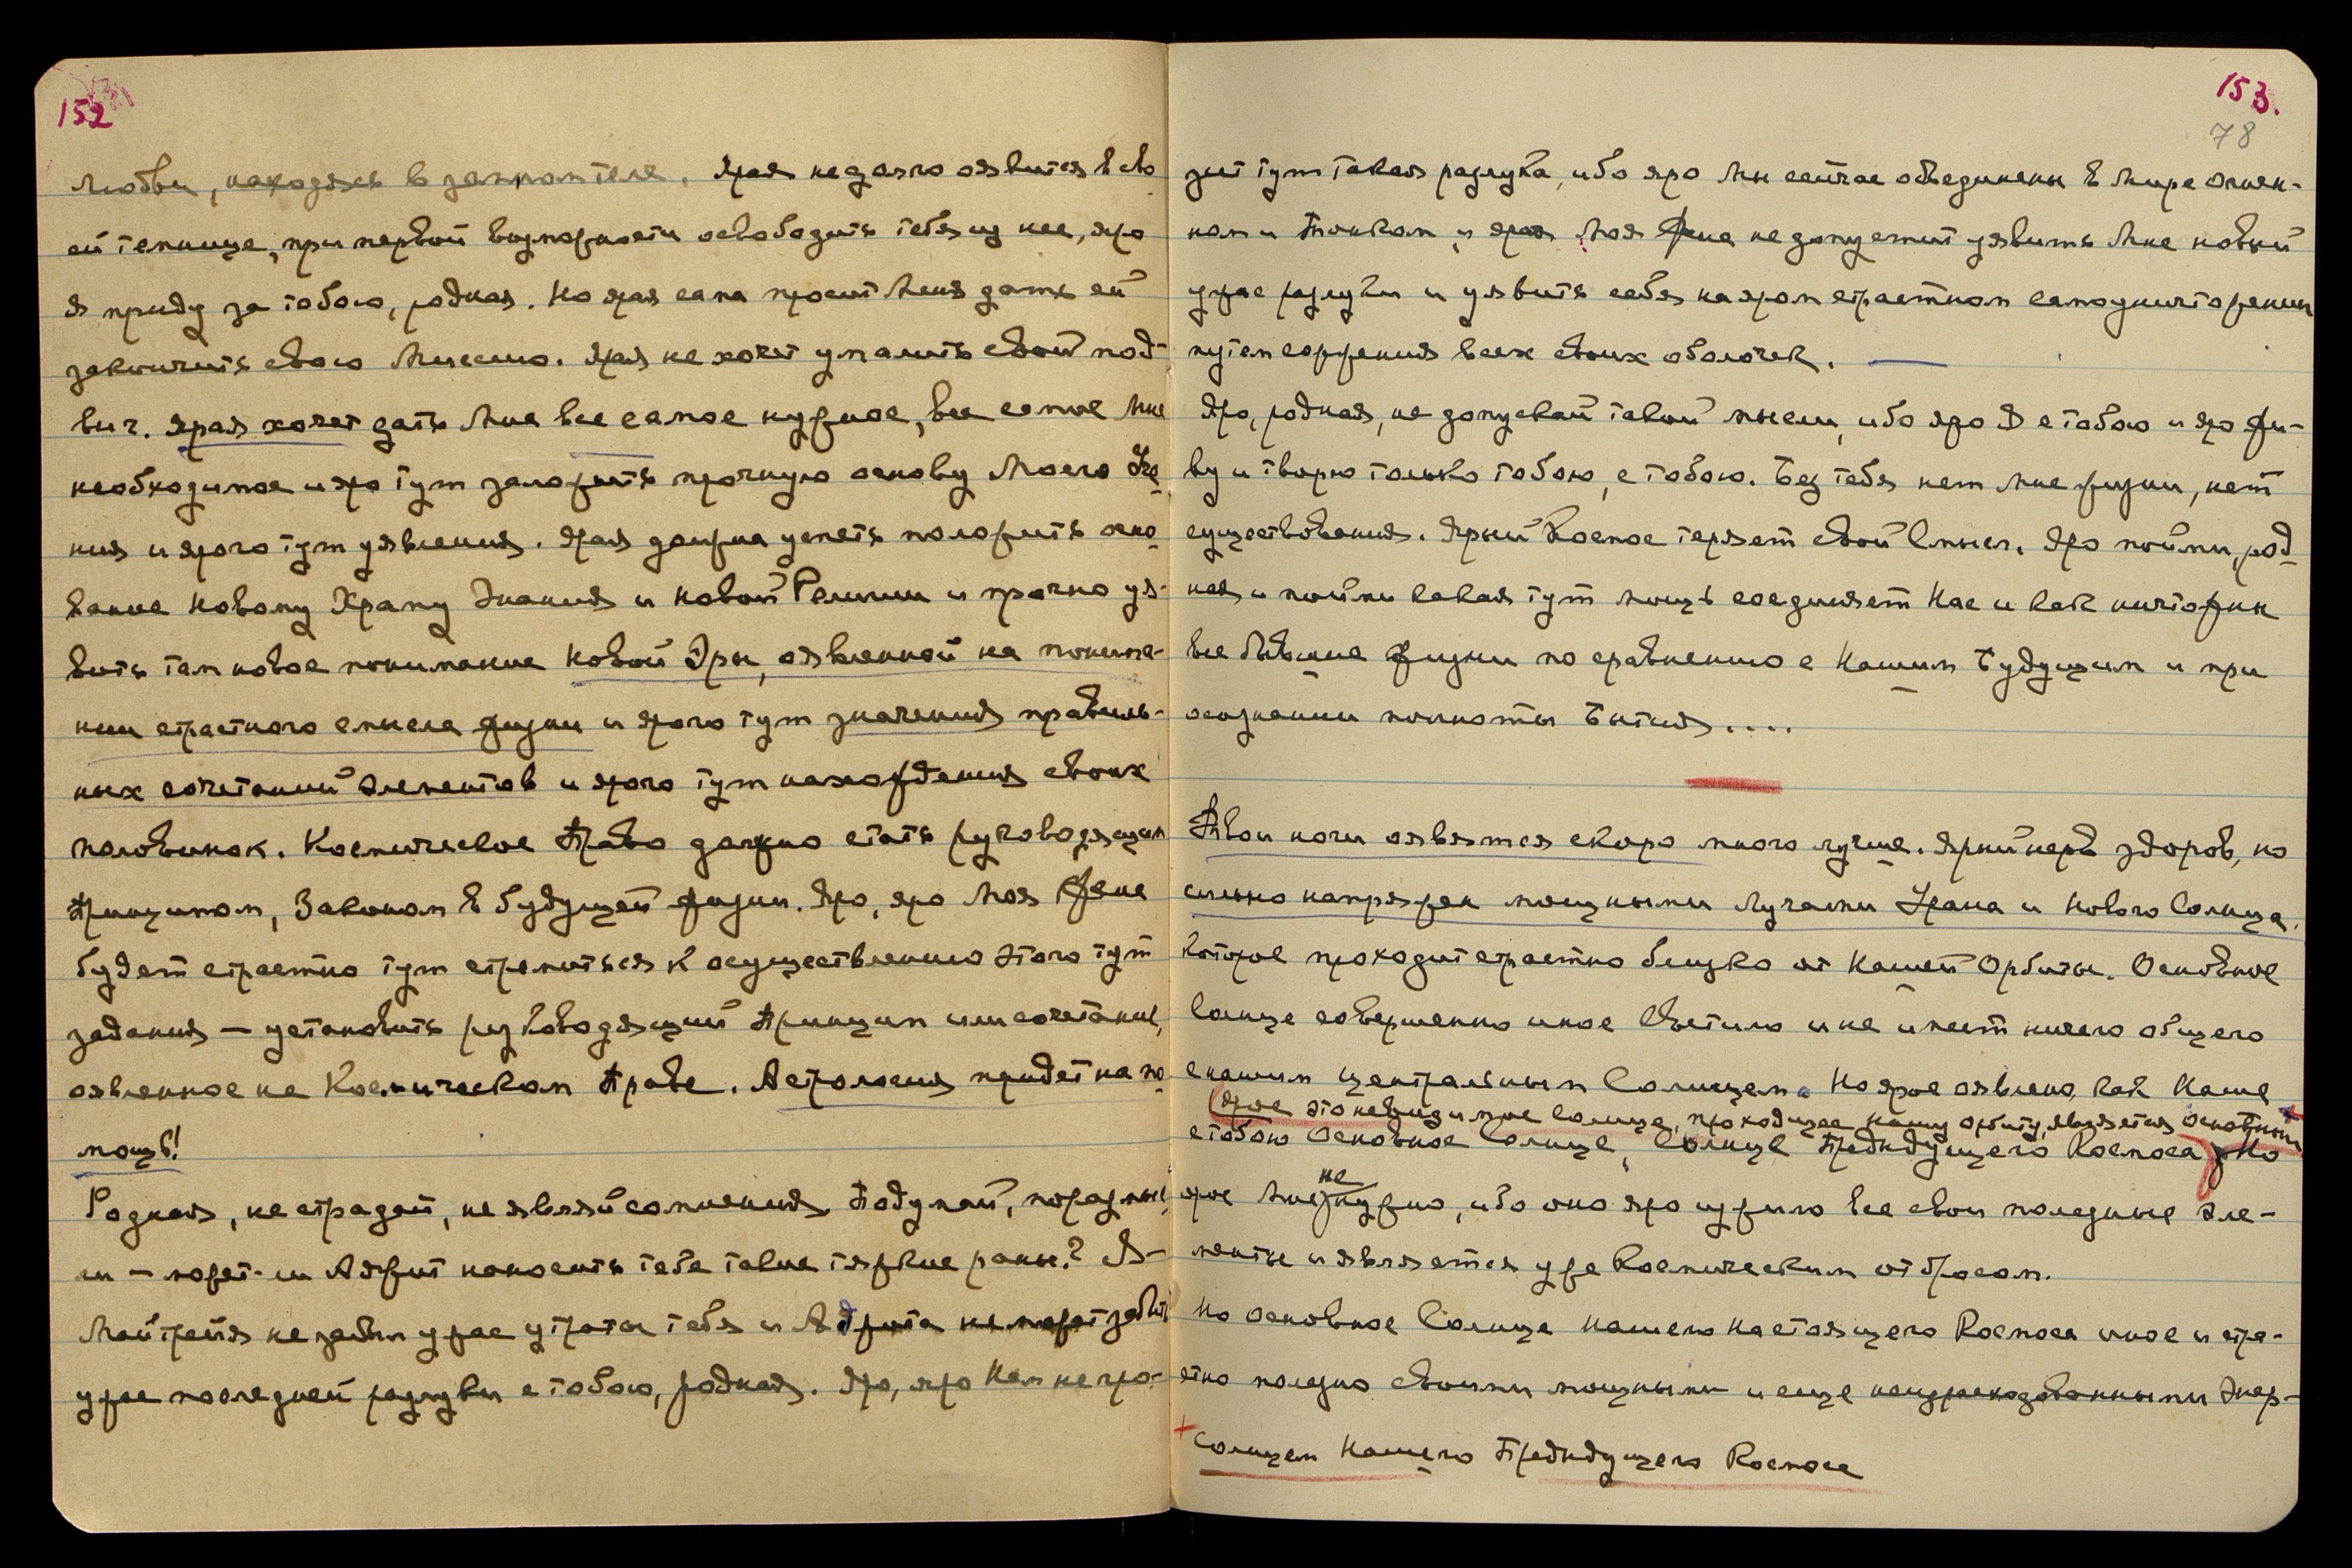 152
любви, находясь в земном теле. Ярая недолго оявится в сво
ей темнице, при первой возможности освободить тебя из нее, яро
я приду за тобою, родная. Но ярая сама просит Меня дать ей
закончить свою Миссию. Ярая не хочет умалить свой под-
виг. Ярая хочет дать Мне все самое нужное, все самое Мне
необходимое и яро тут заложить прочную основу Моего
ния и ярого тут уявления. Ярая должна успеть положить осно
вание Новому Храму Знания и новой Религии и прочно уя-
вить там новое понимание Новой Эры, оявленной на понима-
нии страстного смысла жизни и ярого тут значения правиль-
ных сочетаний элементов и ярого тут нахождения своих
половинок. Космическое Право должно стать руководящим
Принципом, Законом в будущей жизни. Яро, яро Моя Жена
будет страстно тут стремиться к осуществлению этого тут
задания — установить руководящий Принцип или сочетание,
оявленное на Космическом Праве. Астрология придет на по
мощь!
Родная, не страдай, не являй сомнения. Подумай, поразмыс
ли — может-ли Аджит наносить тебе такие тяжкие раны? Я-
Майтрейя не забыл ужас утраты тебя и Аджита не может забыть
ужас последней разлуки с тобою, родная. Яро, яро Нам не гро-
153.
78
зит тут такая разлука, ибо яро Мы сейчас объединены в Мире Огнен-
ном и Тонком и ярая Моя Жена не допустит уявить Мне новый
ужас разлуки и уявить себя на яром страстном самоуничтожении
путем сожжения всех своих оболочек. —
Яро, родная, не допускай такой мысли, ибо яро Я с тобою и яро жи-
ву и творю только тобою, с тобою. Без тебя нет Мне жизни, нет
существования. Ярый Космос теряет свой Смысл. Яро пойми, род
ная и пойми какая тут мощь соединяет Нас и как ничтожны
все бывшие жизни по сравнению с Нашим Будущим и при
осознании полноты Бытия....
Твои ночи оявятся скоро много лучше. Ярый нерв здоров, но
сильно напряжен мощными Лучами Урана и Нового Солнца,
которое проходит страстно близко от Нашей Орбиты. Основное
Солнце совершенно иное Светило и не имеет ничего общего
с нашим центральным Солнцем. Но ярое оявлено, как Наше
(Ярое это невидимое солнце, проходящее нашу орбиту, является основным +
с тобою Основное Солнце, Солнце Предыдущего Космоса) Но
не
ярое Мне нужно, ибо оно яро изжило все свои полезные эле-
менты и является уже Космическим отбросом.
Но основное Солнце нашего Настоящего Космоса иное и стра-
стно полезно своими мощными и еще неизрасходованными Энер-
+ Солнцем Нашего Предыдущего Космоса